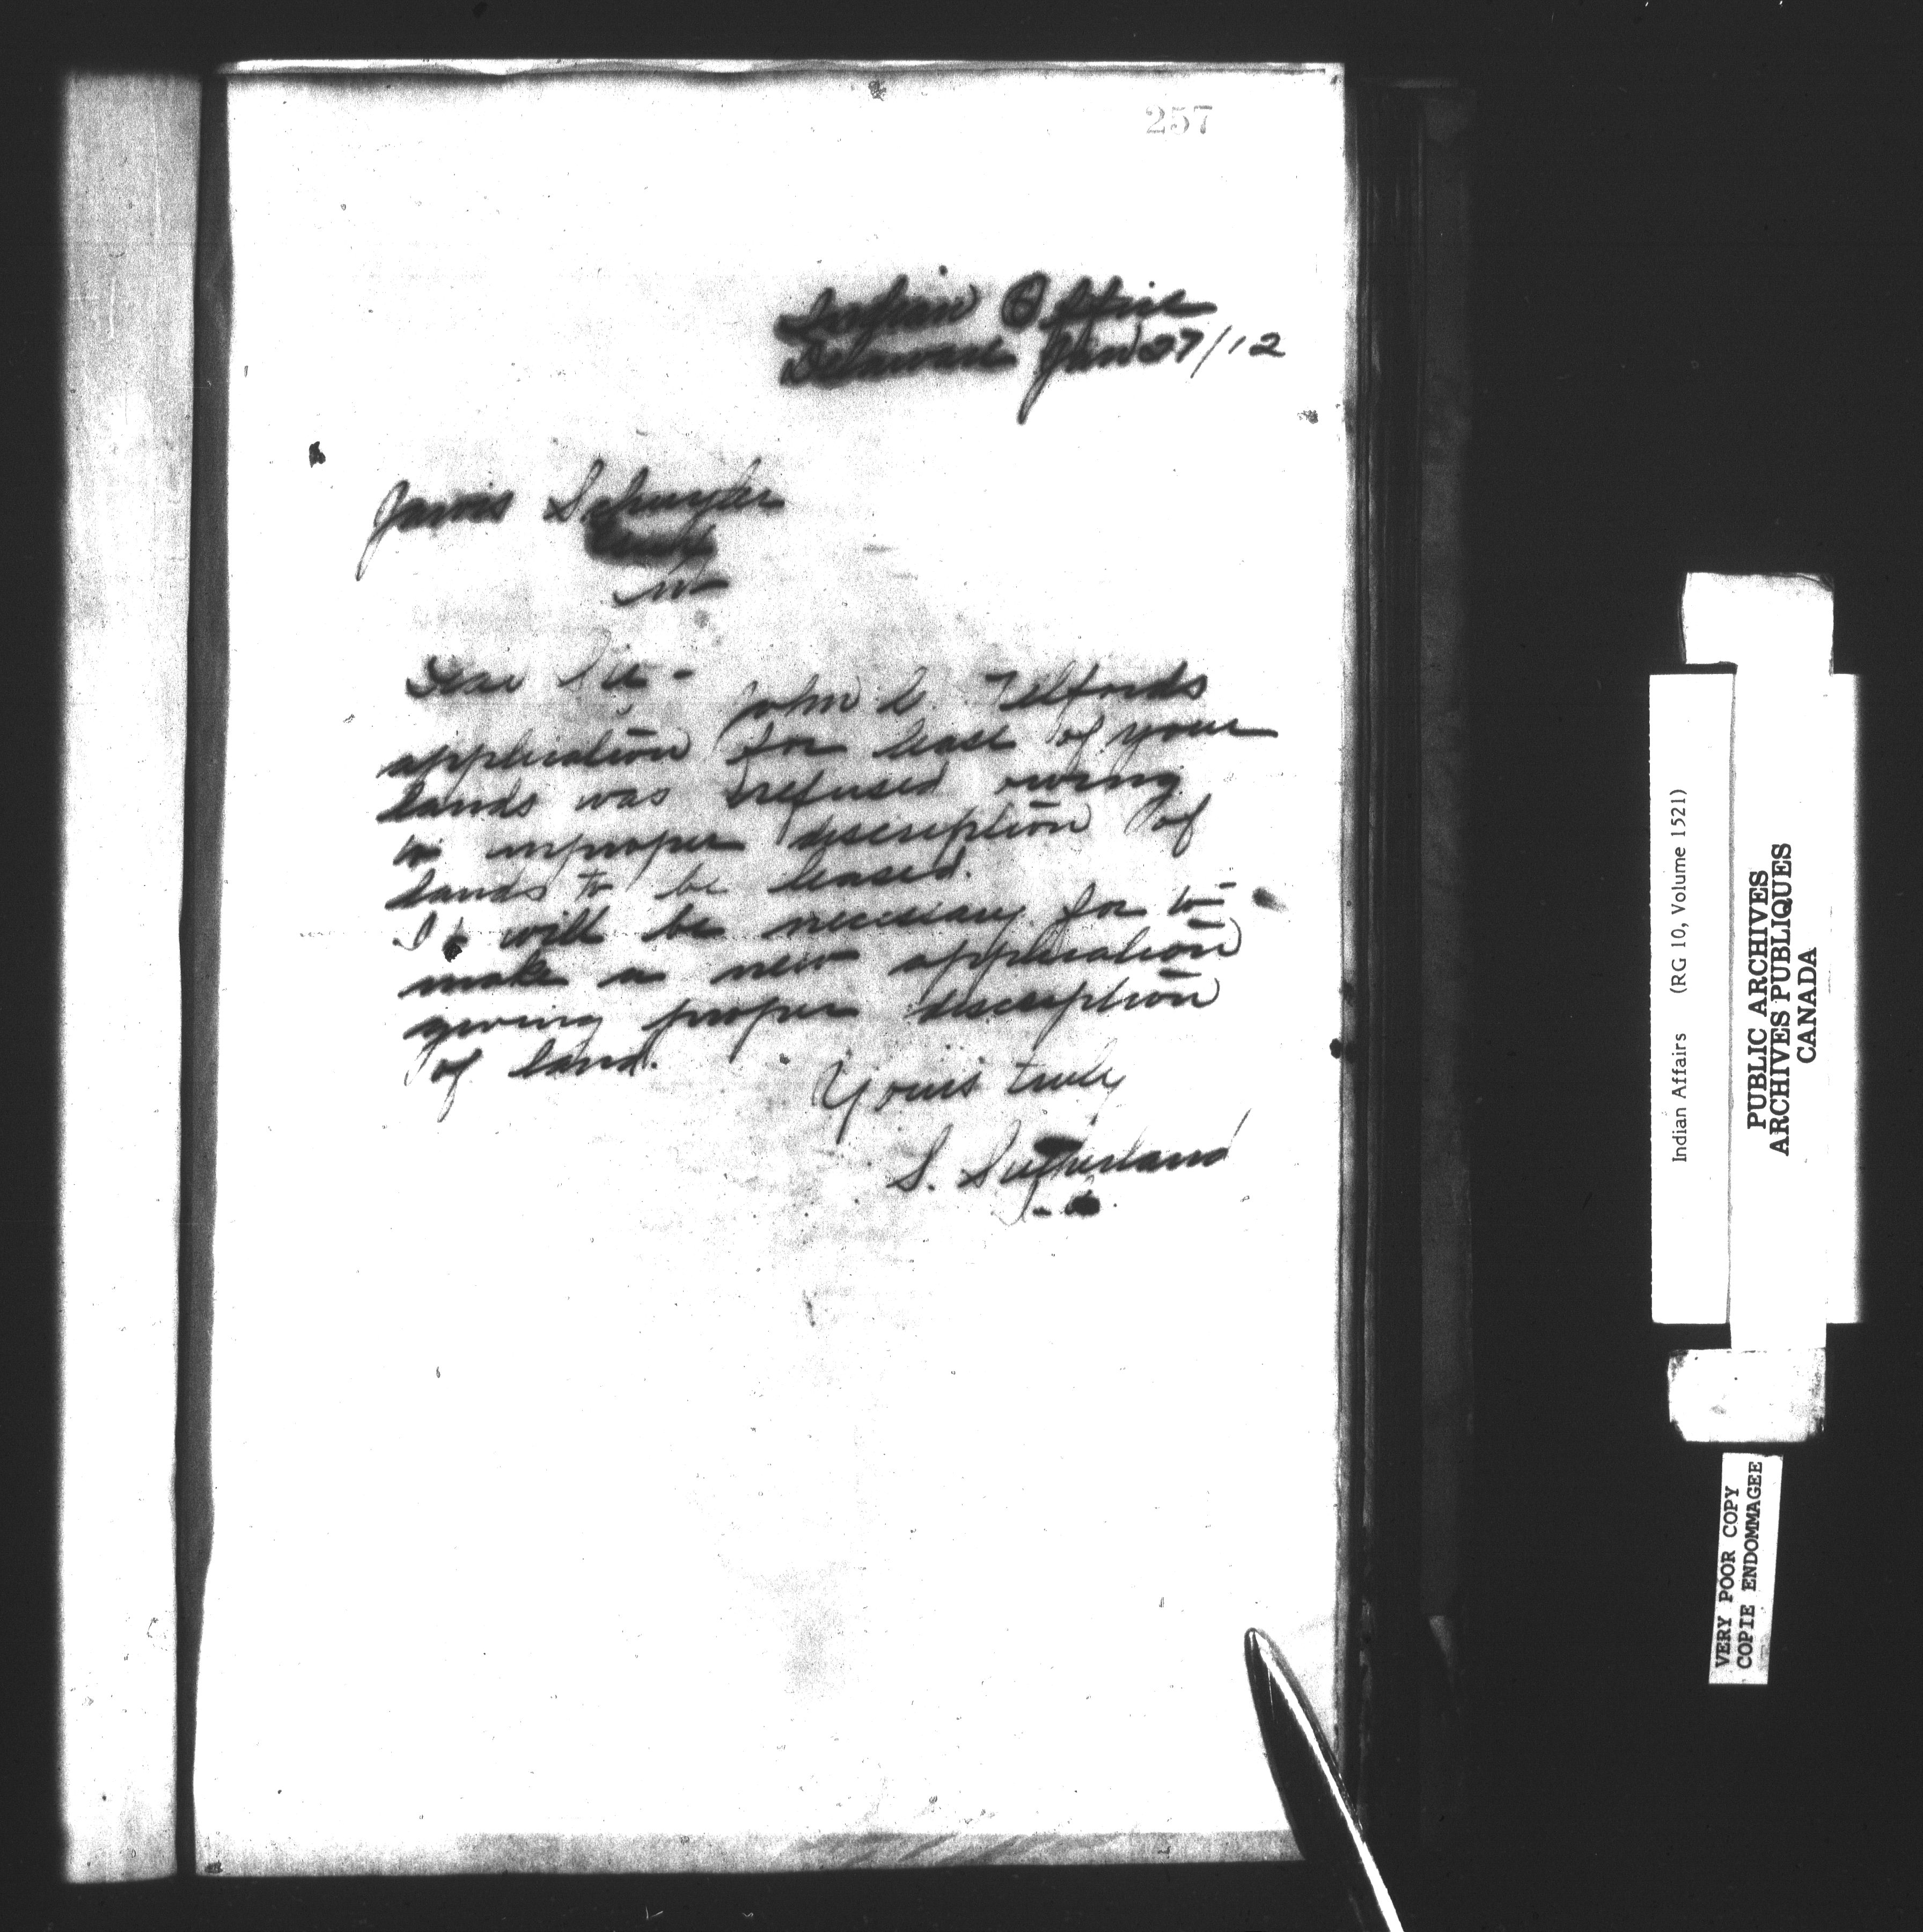 257
Indian Office
Delaware Jan 27/12
Schuyler
Dear Sir -
John Telfords
application for lease of your
lands was refused owing
to improper description of
lands to be leased.
It will be necessary for to
make a new application
giving proper description
of land.
Yours truly
S. Sutherland
Indian Affairs (RG 10, Volume 1521)
PUBLIC ARCHIVES
ARCHIVES PUBLIQUES
CANADA
VERY POOR COPY
COPIE ENDOMMAGEE